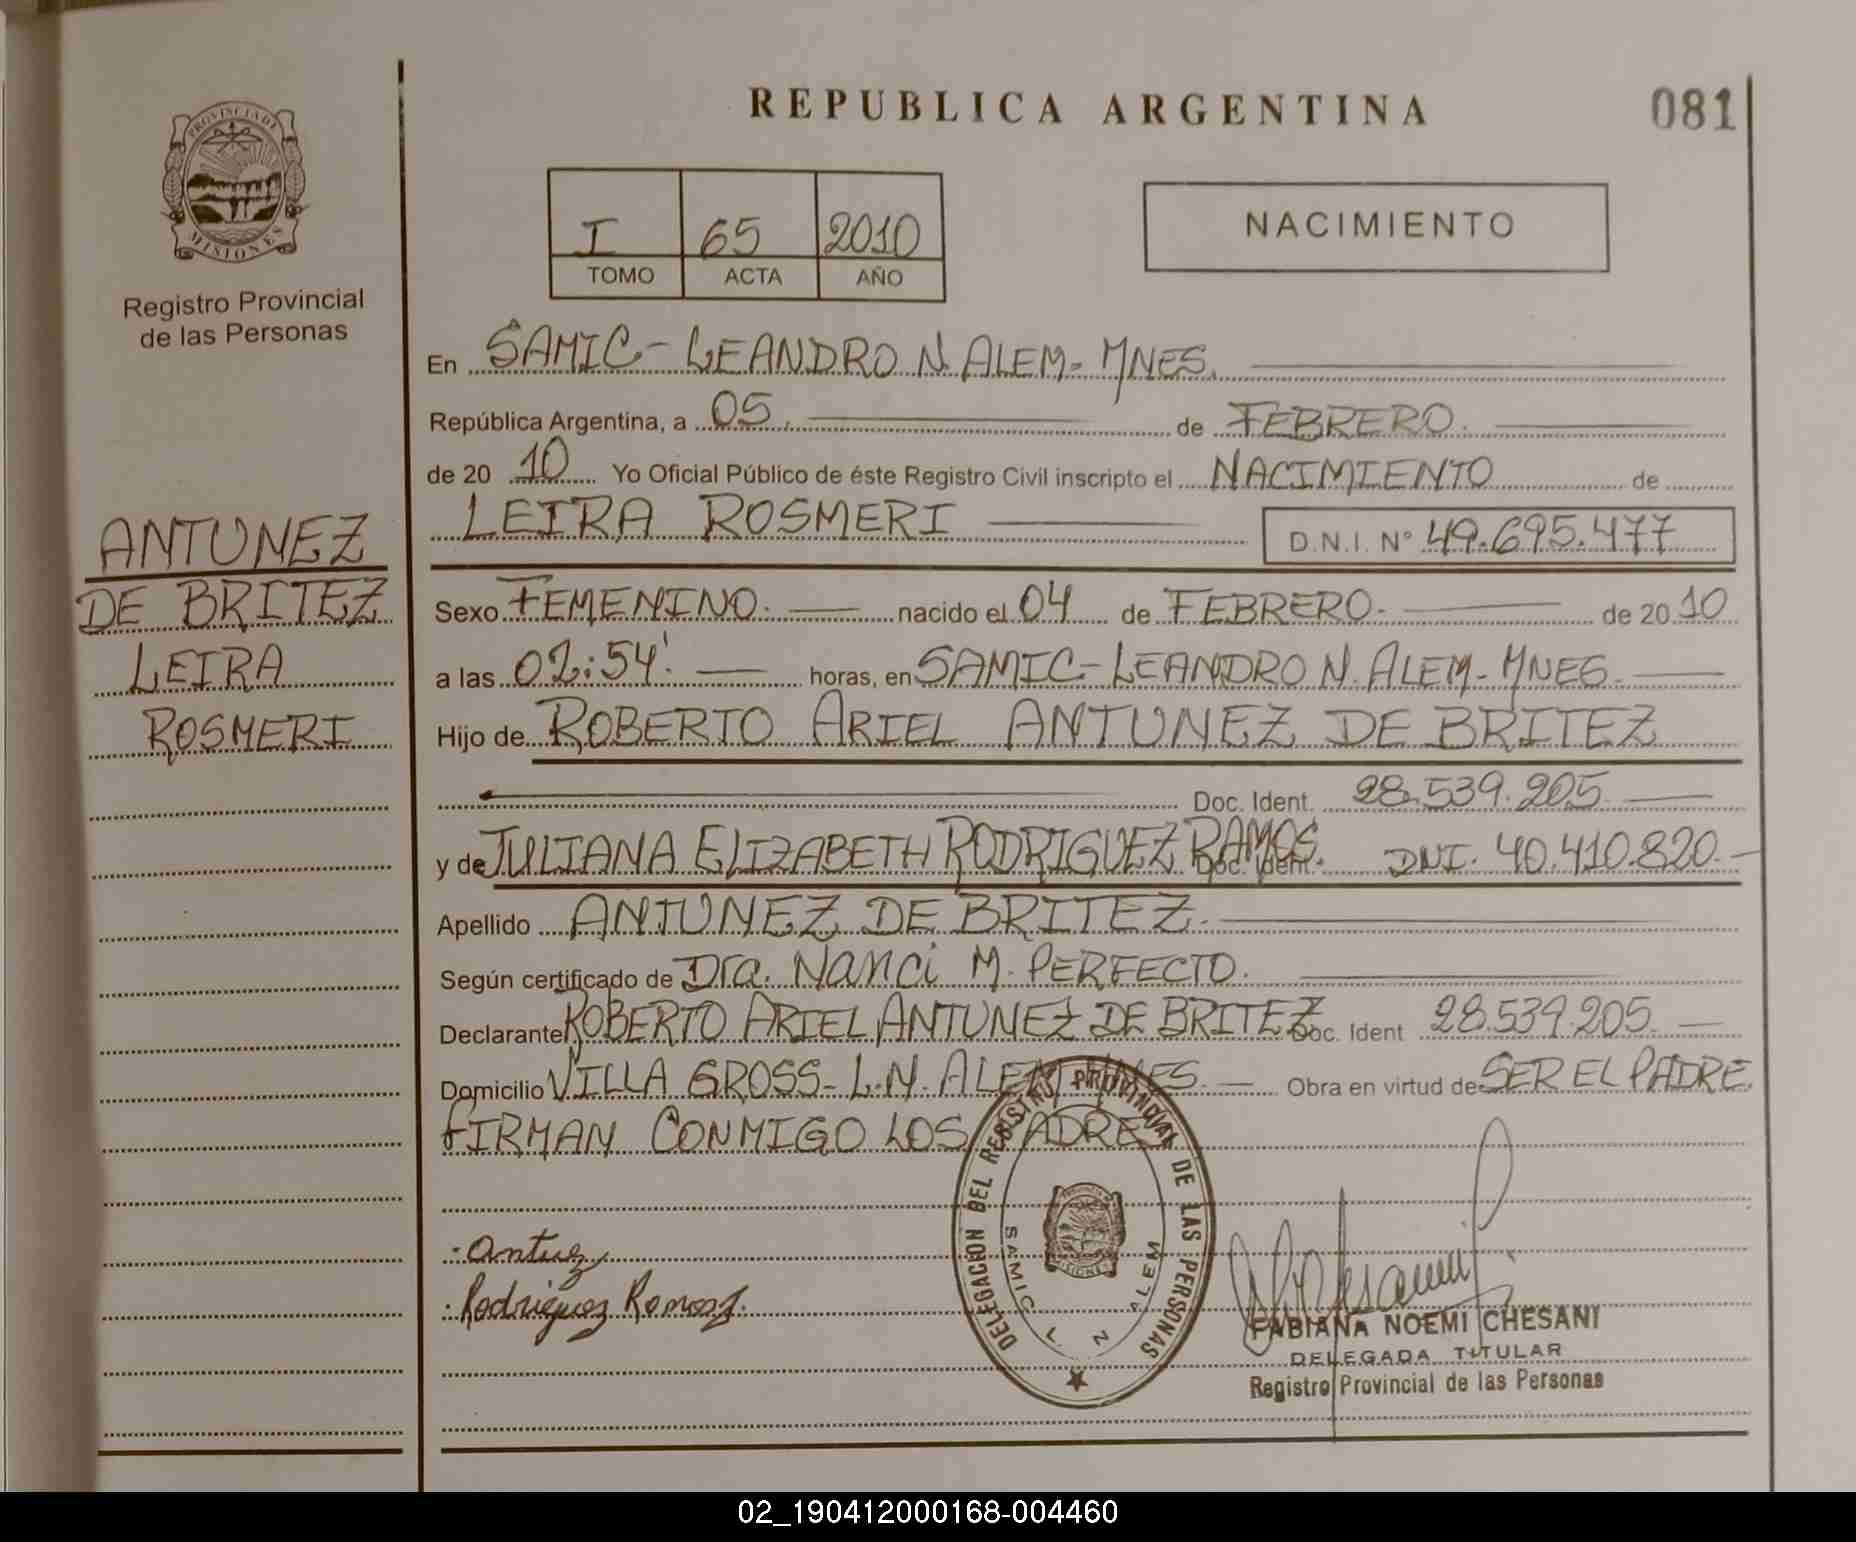 REPUBLICA ARGENTINA
081
PROVINCIA DE
MISIONES
Registro Provincial
de las Personas
I 65 2010
TOMO ACTA AÑO
NACIMIENTO
En SAMIC - LEANDRO N. ALEM - MNES.
República Argentina, a 05. de FEBRERO.
de 20 10 Yo Oficial Público de éste Registro Civil inscripto el NACIMIENTO de
LEIRA ROSMERI D.N.I. N° 49.695.477
ANTUNEZ
DE BRITEZ
LEIRA
ROSMERI
Sexo FEMENINO. nacido el 04 de FEBRERO. de 20 10
a las 02:54'. horas, en SAMIC - LEANDRO N. ALEM - MNES.
Hijo de ROBERTO ARIEL ANTUNEZ DE BRITEZ
Doc. Ident. 28.539.205
y de JULIANA ELIZABETH RODRIGUEZ RAMOS. Doc. Ident. DNI. 40.410.820.
Apellido ANTUNEZ DE BRITEZ.
Según certificado de Dra. Nanci M. PERFECTO.
Declarante ROBERTO ARIEL ANTUNEZ DE BRITEZ Doc. Ident 28.539.205.
Domicilio VILLA GROSS - L.N. ALEM MNES. Obra en virtud de SER EL PADRE.
FIRMAN CONMIGO LOS PADRES
DELEGACION DEL REGISTRO PROVINCIAL DE LAS PERSONAS
SAMIC L N ALEM
MISIONES
Rodriguez
FABIANA NOEMI CHESANI
DELEGADA TITULAR
Registro Provincial de las Personas
02_190412000168-004460